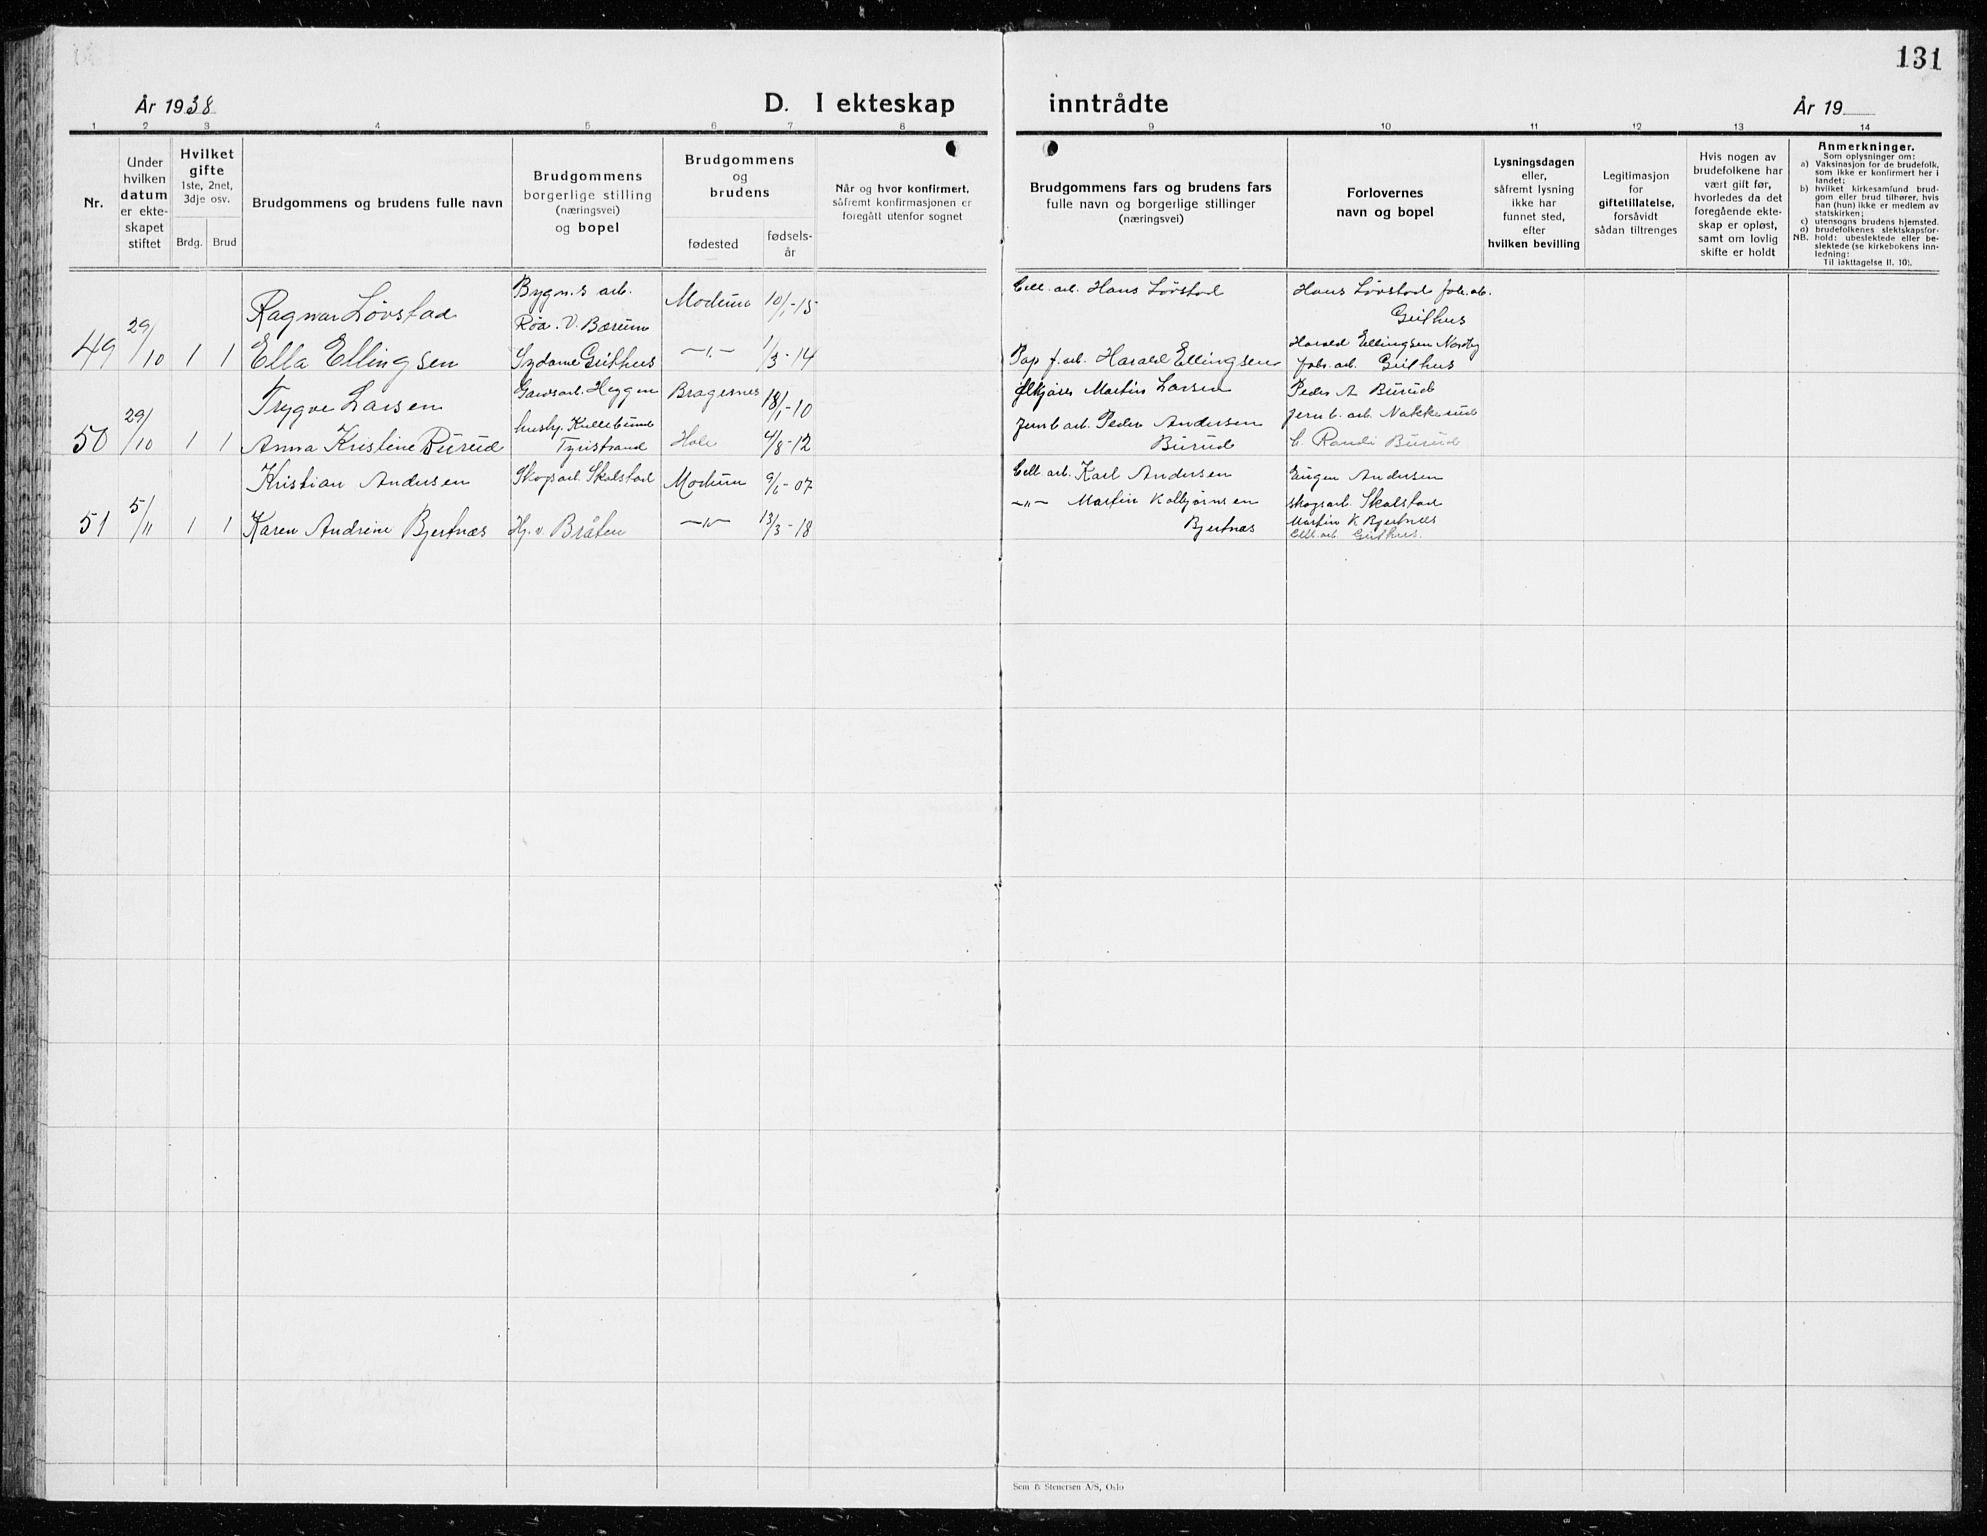 131
År 1938
D. I ekteskap
inntrådte
År 19
1 2 3 4 5 6 7 8
9 10 11 12 13 14
Nr.
Under
hvilken
datum
er ekte-
skapet
stiftet
Hvilket
gifte
1ste, 2net,
3dje osv.
Brdg. Brud
Brudgommens og brudens fulle navn
Brudgommens
borgerlige stilling
(næringsvei)
og bopel
Brudgommens
og
brudens
fødested
fødsels-
år
Når og hvor konfirmert,
såfremt konfirmasjonen er
foregått utenfor sognet
Brudgommens fars og brudens fars
fulle navn og borgerlige stillinger
(næringsvei)
Forlovernes
navn og bopel
Lysningsdagen
eller,
såfremt lysning
ikke har
funnet sted,
efter
hvilken bevilling
Legitimasjon
for
giftetillatelse,
forsåvidt
sådan tiltrenges
Hvis nogen av
brudefolkene har
vært gift før,
hvorledes da det
foregående ekte-
skap er opløst,
samt om lovlig
skifte er holdt
Anmerkninger.
Som oplysninger om:
a) Vaksinasjon for de brudefolk,
som ikke er konfirmert her i
landet;
b) hvilket kirkesamfund brud-
gom eller brud tilhører, hvis
han (hun) ikke er medlem av
statskirken;
c) utensogns brudens hjemsted.
d) brudefolkenes slektskapsfor-
NB. hold: ubeslektede eller be-
slektede (se kirkebokens inn-
ledning:
Til iakttagelse II. 10).
49 29/10 1 1
Ragnar Løvstad
Bygn.s arb.
Røa. V. Bærum
Modum 10/1-15
Cell. arb. Hans Løvstad
Hans Løvstad fab. arb.
Geithus
Ella Ellingsen
Sydame Geithus
-"- 1/3-14
Pap f. arb. Harald Ellingsen
Harald Ellingsen Nordby
fabr. arb. Geithus
50 29/10 1 1
Trygve Larsen
Gardsarb. Heggen
Bragernes 18/1-10
Martin Larsen
Peder A Burud
Jernb. arb. Nakkerud
Anna Kristine Burud
husby.
Tyristrand
Hole 4/8-12
Jernb arb. Peder Andersen
Burud
Randi Burud
51 5/11 1 1
Kristian Andersen
Skogsarb. Skalstad
Modum 9/6-07
Cell. arb. Karl Andersen
Eugen Andersen
skogsarb. Skalstad
Karen Andrine Bjertnæs
Hj. v. Bråten
-"- 13/3-18
-"- Martin Kolbjørnsen
Bjertnæs
Martin K Bjertnæs
Cell. arb. Geithus.
Sem & Stenersen A/S, Oslo